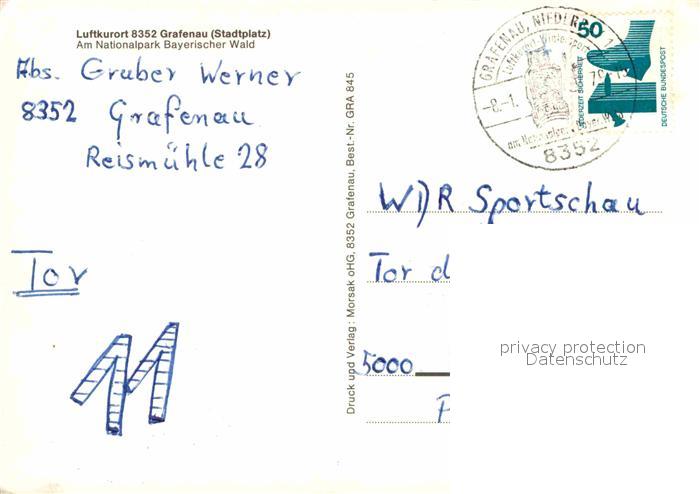 Luftkurort 8352 Grafenau (Stadtplatz)
Am Nationalpark Bayerischer Wald
Abs. Gruber Werner
8352 Grafenau
Reismühle 28
Tor
11
Druck und Verlag: Morsak oHG, 8352 Grafenau, Best.-Nr. GRA 845
GRAFENAU, NIEDERB 1
-8.-1.
8352
50
JEDERZEIT SICHERHEIT
DEUTSCHE BUNDESPOST
WDR Sportschau
Tor d
5000
P
privacy protection
Datenschutz